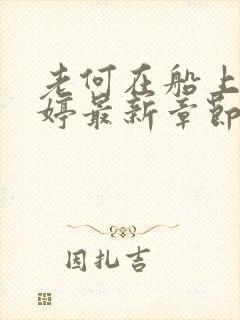 老何在船上
婷最新章节
因扎吉